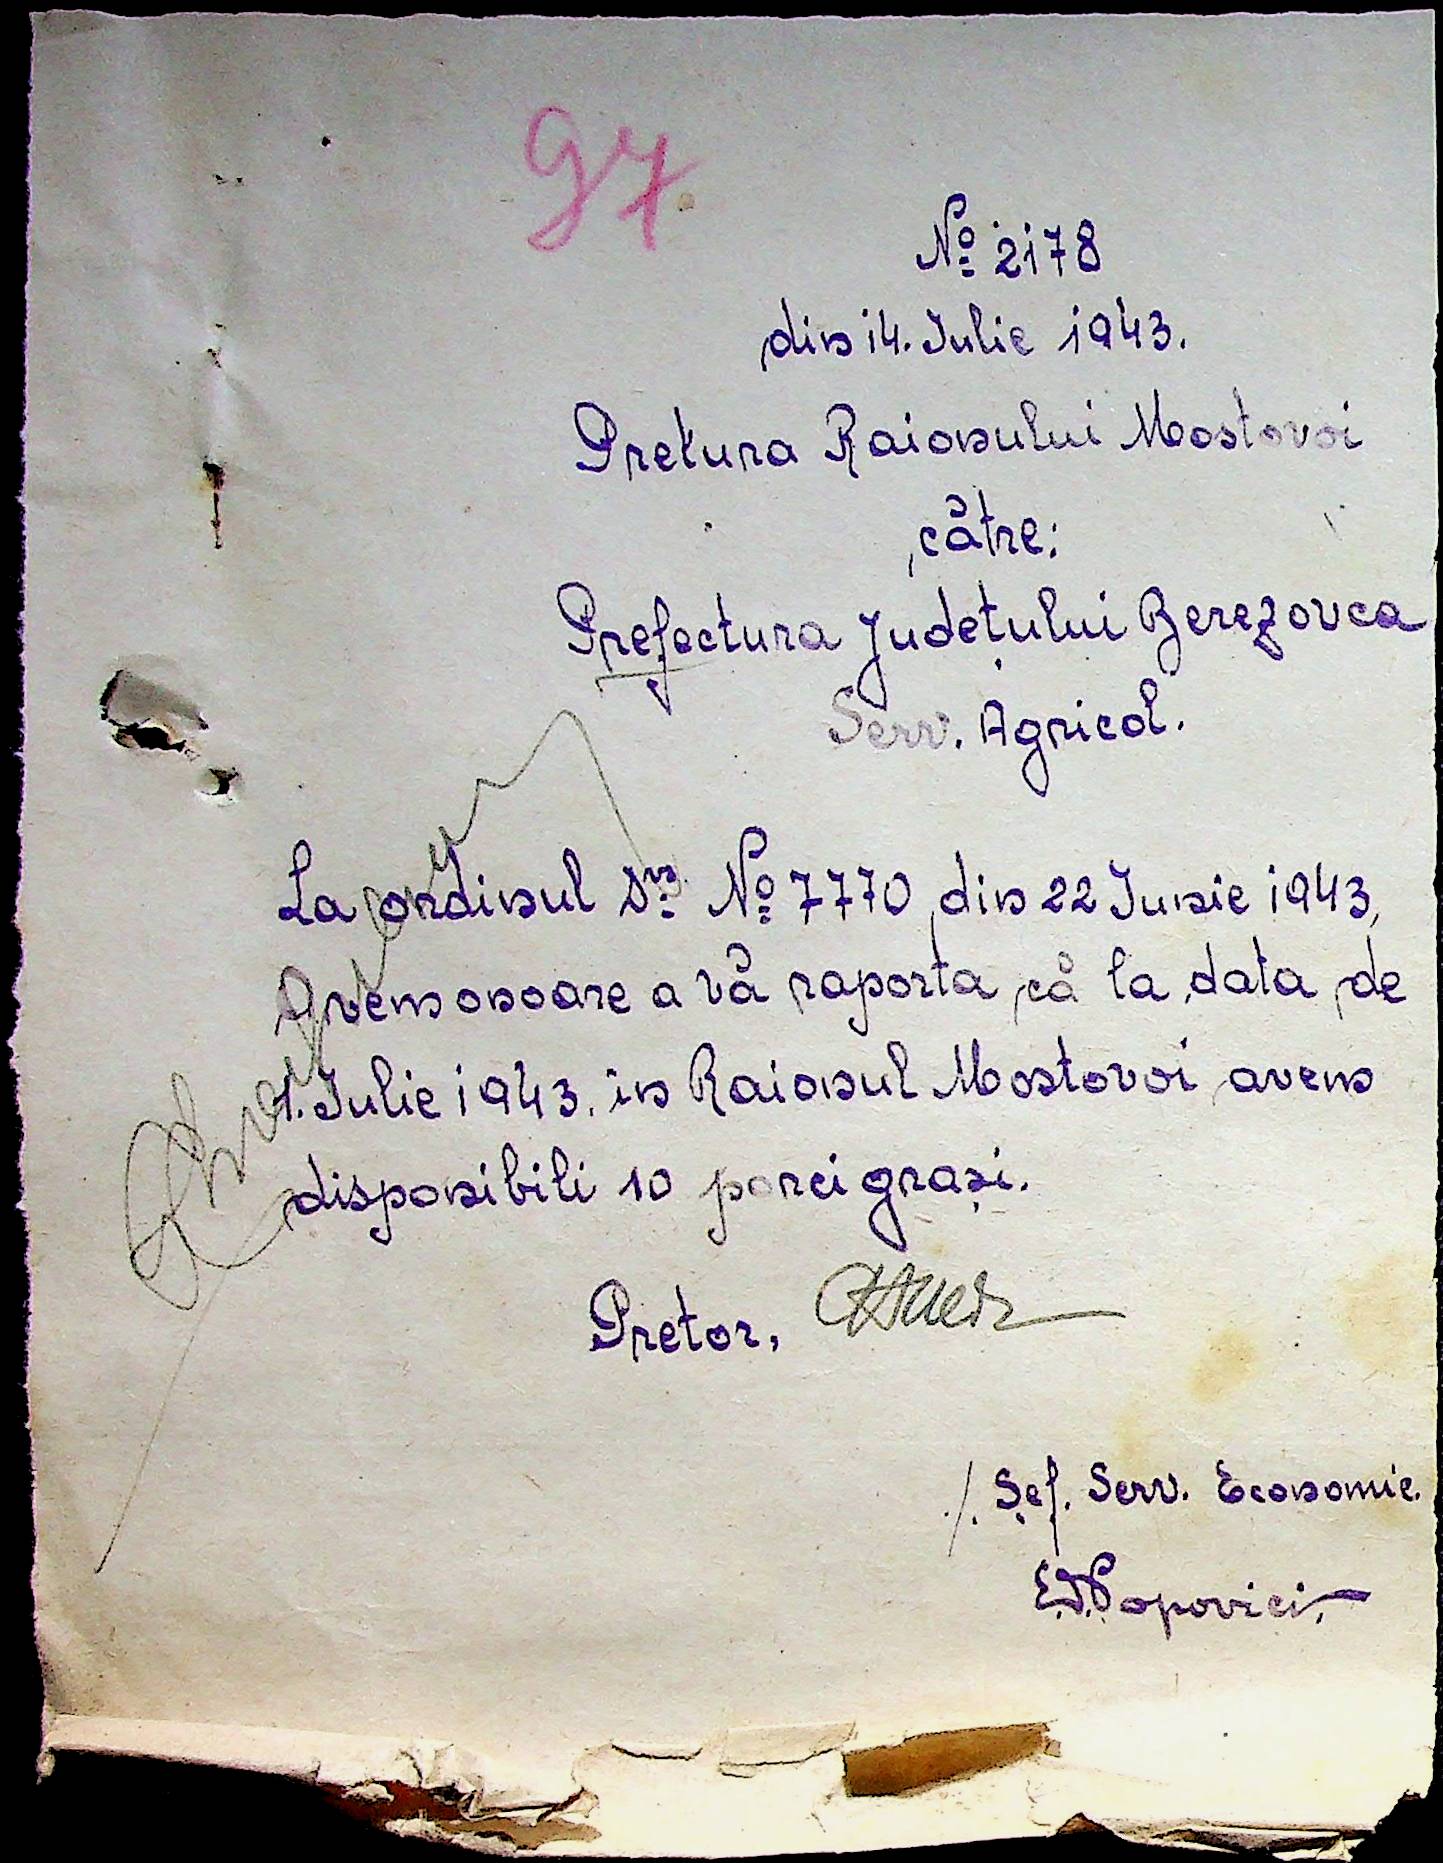 97
No 2178
din 14. Iulie 1943.
Pretura Raionului Mostovoi
către:
Prefectura Județului Berezovca
Serv. Agricol.
La ordinul Dvs. No 7770 din 22 Iunie 1943,
Avem onoare a vă raporta că la data de
1. Iulie 1943. în Raionul Mostovoi avem
disponibili 10 porci grași.
Pretor,
/. Șef. Serv. Economic.
E.D. Popovici